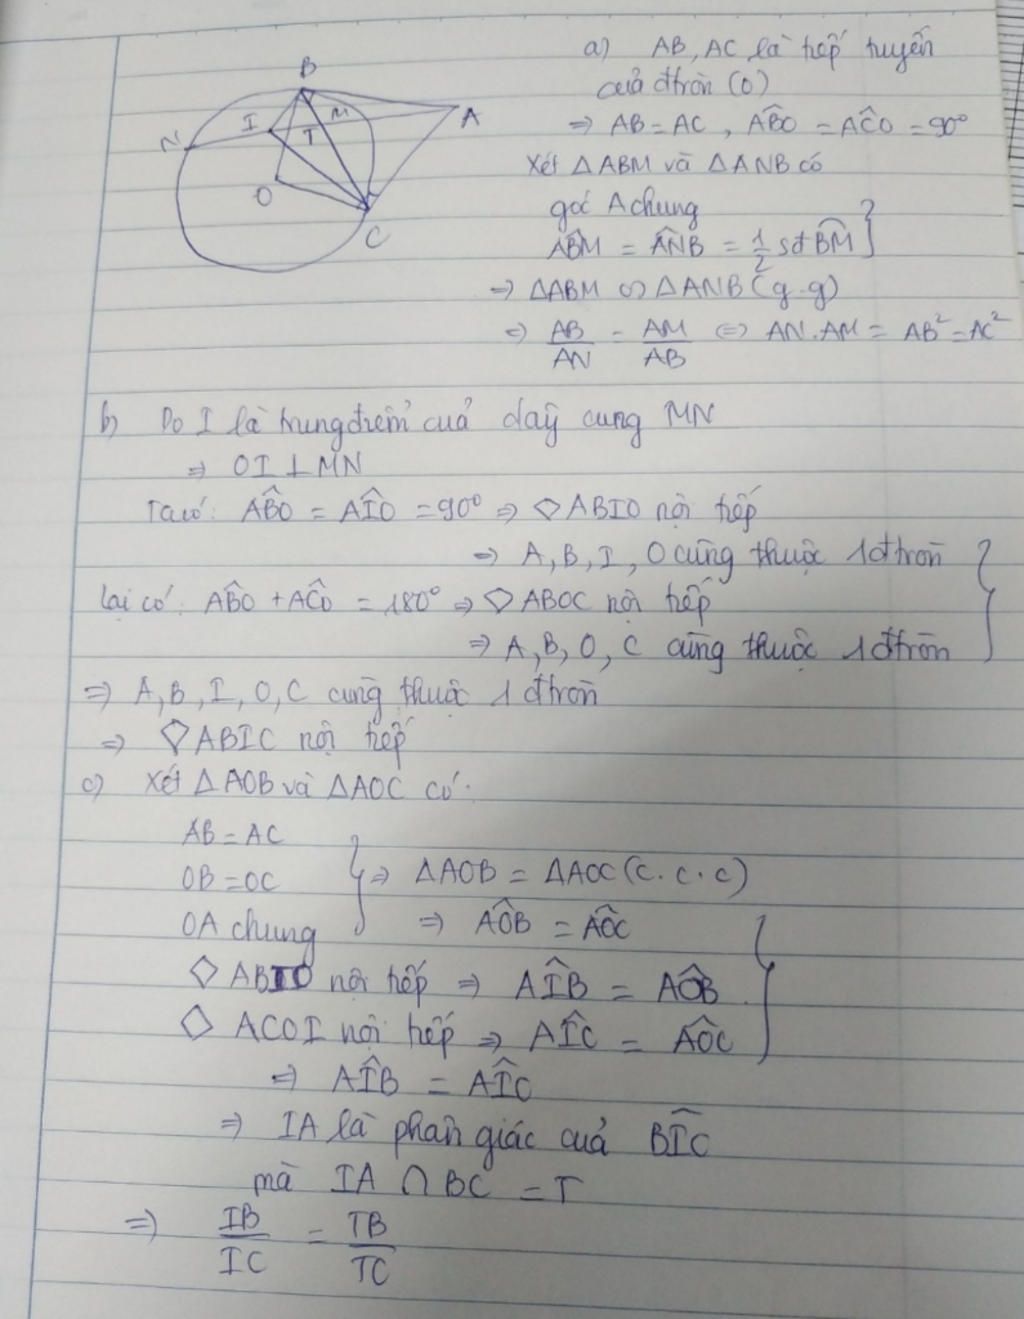 B
I
M
T
N
A
O
C
a) AB, AC là tiếp tuyến
của đtròn (O)
=> AB = AC, ABO^ = ACO^ = 90°
Xét △ABM và △ANB có
góc A chung
ABM^ = ANB^ = 1/2 sđ BM }
=> △ABM ∽ △ANB (g.g)
=> AB/AN = AM/AB <=> AN.AM = AB² = AC²
b) Do I là trung điểm của dây cung MN
=> OI ⊥ MN
Ta có: ABO^ = AIO^ = 90° => ◇ABIO nội tiếp
=> A, B, I, O cùng thuộc 1 đtròn
lại có: ABO^ + ACO^ = 180° => ◇ABOC nội tiếp
=> A, B, O, C cùng thuộc 1 đtròn
=> A, B, I, O, C cùng thuộc 1 đtròn
=> ◇ABIC nội tiếp
c) Xét △AOB và △AOC có:
AB = AC
OB = OC } => △AOB = △AOC (c.c.c)
OA chung => AOB^ = AOC^
◇ABIO nội tiếp => AIB^ = AOB^
◇ACOI nội tiếp => AIC^ = AOC^
=> AIB^ = AIC^
=> IA là phân giác của BIC^
mà IA ∩ BC = T
=> IB/IC = TB/TC